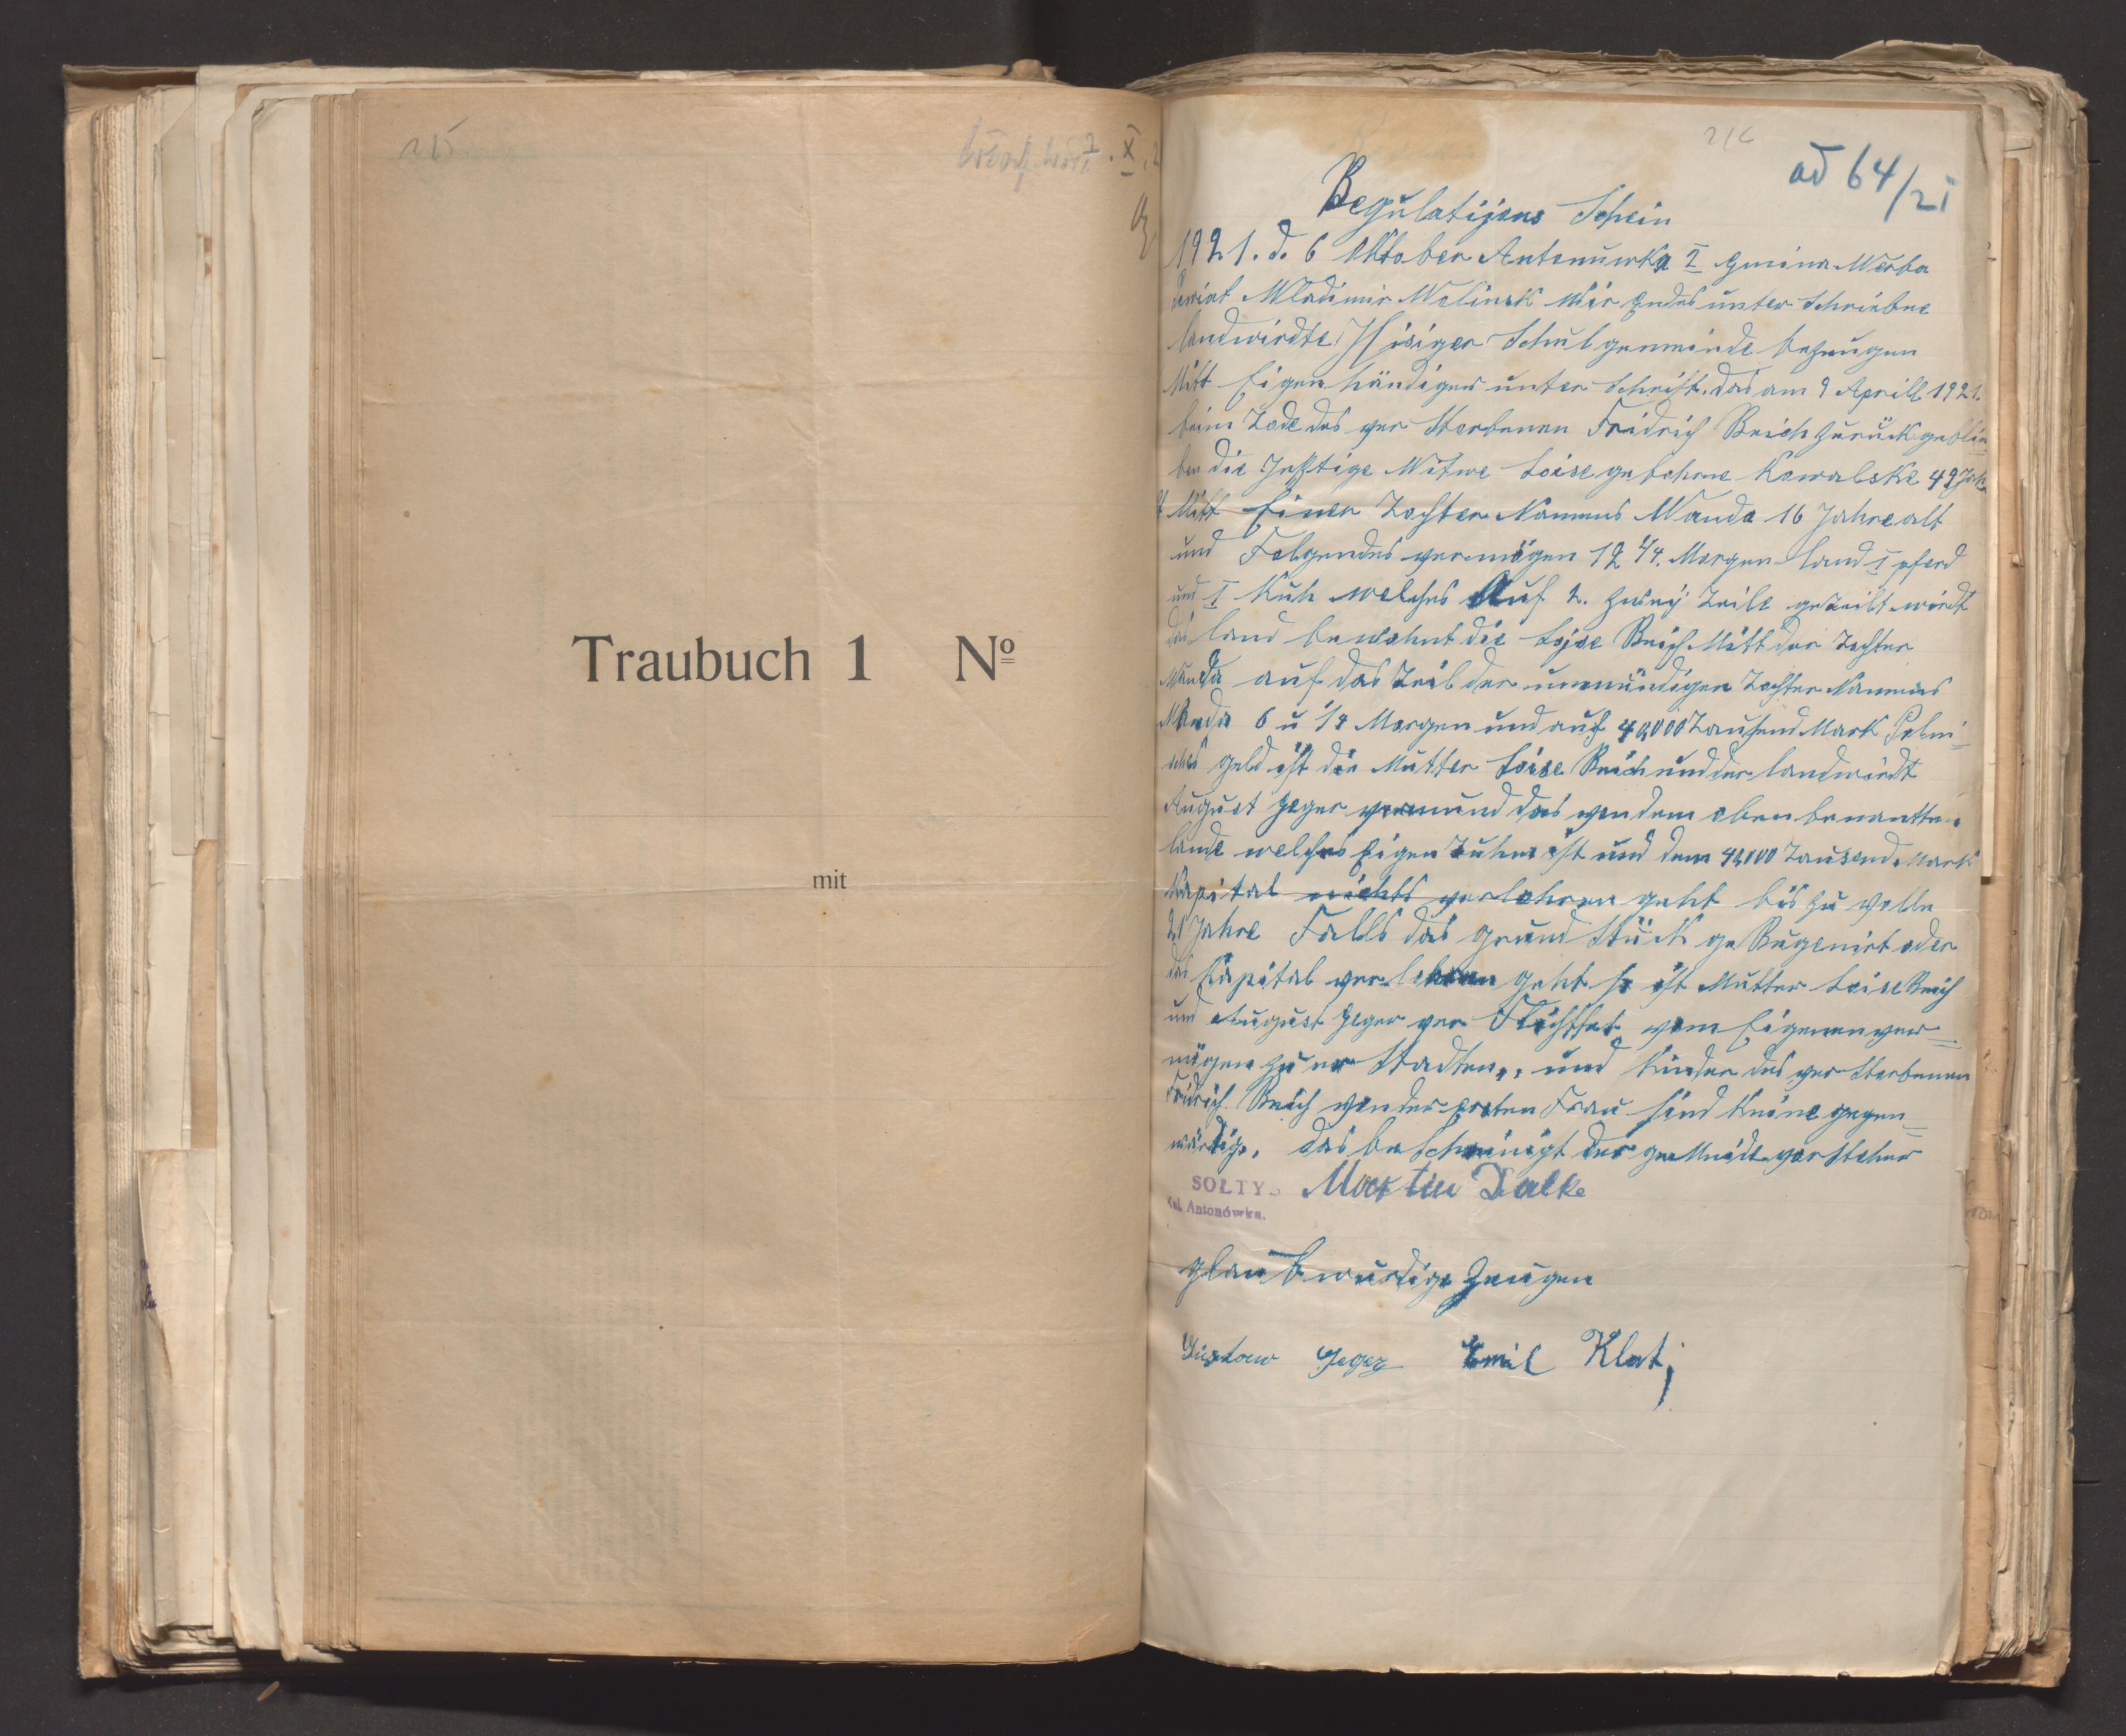 Traubuch 1 Nº
mit
216
ad 64/21
Regulatijons Schein
1921. d. 6 Oktober Antonuwka I Gmina Werba
Powiat Wladimir Wolinsk Wir Endes unter Schriebne
landwirdte Hisiger Schulgemeinde bezeugen
Mitt Eigenhändiger unter Schrift. das am 9 Aprill 1921.
beim Tode des ver Storbenen Fridrich Reich zurückgeblie=
ben die Jetztige Witwe Loise gebohrne Kowalske 49 Jahr
Mitt Einer Tochter Namens Wanda 16 Jahre alt
und Folgendes vermögen 12 1/4. Morgen land 1 pferd
und 1 Kuh welches Auf 2. zweij Teile geteilt wirdt
das land bewohnt die Loise Reich Mitt der Tochter
Wanda auf das Teil der unmündigen Tochter Namens
Wanda 6 u 1/4 Morgen und auf 40,000 Tausend Mark Polni=
sches geld ist die Mutter Loise Reich und der landwirdt
August Jeger vormund das von dem obenbenantten
lande welches Eigentuhm ist und dem 40,000 Tausend Mark
Kapital nichts verlohren geht bis zu volle
21 Jahre Falls das grund Stück geRugenirt oder
das Kapital verlohren geht so ist Mutter Loise Reich
und August Jeger ver Flichthet vom Eigenen ver=
mögen zu er Stadten,, und Kinder des ver Storbenen
Fridrich Reich von der ersten Frau sind Keine gegen=
wärtig. das beScheinigt der gemeinde vorsteher
SOŁTYS Martin Dalke
Kol. Antonówka.
glaubwürdige Zeugen
Gustaw Jeger Emil Klat